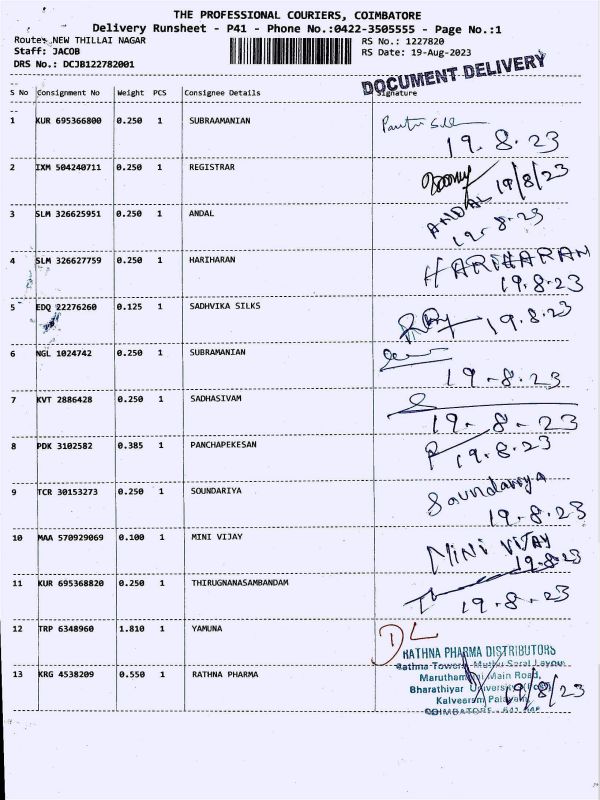 THE PROFESSIONAL COURIERS, COIMBATORE
Delivery Runsheet - P41 - Phone No.:0422-3505555 - Page No.:1
Route: NEW THILLAI NAGAR RS No.: 1227820
Staff: JACOB RS Date: 19-Aug-2023
DRS No.: DCJB122782001
DOCUMENT DELIVERY
S No Consignment No Weight PCS Consignee Details Signature
1 KUR 695366800 0.250 1 SUBRAAMANIAN
19.8.23
2 IXM 504240711 0.250 1 REGISTRAR 19/8/23
3 SLM 326625951 0.250 1 ANDAL ANDAL
19-8-23
4 SLM 326627759 0.250 1 HARIHARAN HARIHARAN
19.8.23
5 EDQ 22276260 0.125 1 SADHVIKA SILKS 19.8.23
6 NGL 1024742 0.250 1 SUBRAMANIAN
19-8.23
7 KVT 2886428 0.250 1 SADHASIVAM
19-8-23
8 PDK 3102582 0.385 1 PANCHAPEKESAN 19.8.23
9 TCR 30153273 0.250 1 SOUNDARIYA Soundariya
19.8.23
10 MAA 570929069 0.100 1 MINI VIJAY MINI VIJAY
19.8.23
11 KUR 695368820 0.250 1 THIRUGNANASAMBANDAM
19.8.23
12 TRP 6348960 1.810 1 YAMUNA DL
RATHNA PHARMA DISTRIBUTORS
Rathna Towers, Muthu Layout
13 KRG 4538209 0.550 1 RATHNA PHARMA Main Road,
Bharathiyar University (Post) 19/8/23
Kalveeram
COIMBATORE